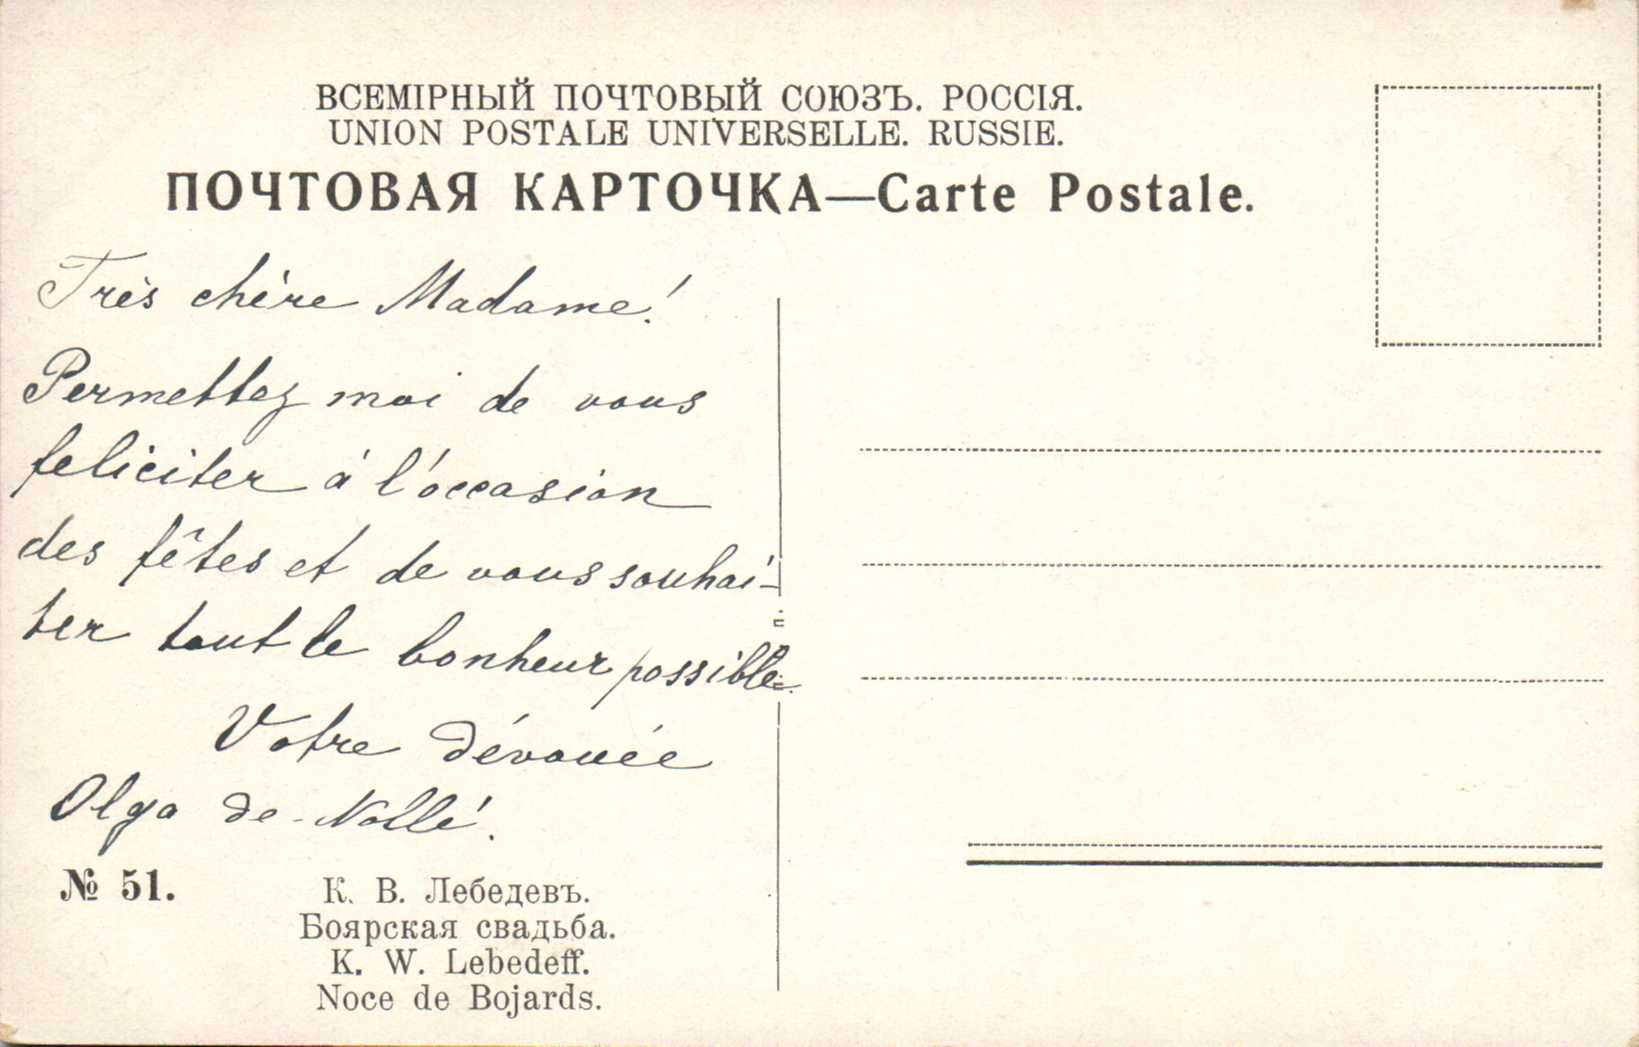 ВСЕМІРНЫЙ ПОЧТОВЫЙ СОЮЗЪ. РОССІЯ.
UNION POSTALE UNIVERSELLE. RUSSIE.
ПОЧТОВАЯ КАРТОЧКА—Carte Postale.
Très chère Madame!
Permettez moi de vous
feliciter à l'occasion
des fêtes et de vous souhai-
ter tout le bonheur possible.
Votre dévouée
Olga de-Nollé.
№ 51.
К. В. Лебедевъ.
Боярская свадьба.
K. W. Lebedeff.
Noce de Bojards.